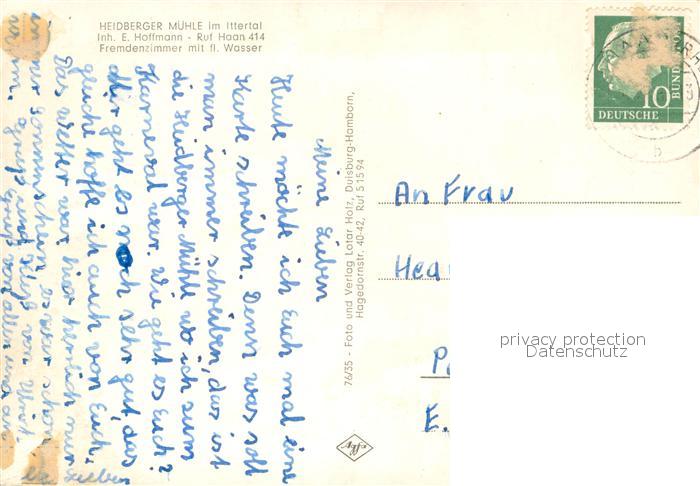 HEIDBERGER MÜHLE im Ittertal
Inh. E. Hoffmann - Ruf Haan 414
Fremdenzimmer mit fl. Wasser
Meine Lieben
Heute möchte ich Euch mal eine
Karte schreiben. Denn was soll
man immer schreiben, das ist
die Heidberger Mühle wo ich zum
Karneval war. Wie geht es Euch?
Mir geht es noch sehr gut, das
gleiche hoffe ich auch von Euch.
Das Wetter war hier herrlich nur
immer Sonnenschein, es war schon
warm. Gruß und Kuß von
Gruß von allen und an
Lieben
76/35 - Foto und Verlag Lotar Holz, Duisburg-Hamborn,
Hagedornstr. 40-42, Ruf 5 15 94
Agfa
10
DEUTSCHE
BUNDESPOST
HAAN
b
An Frau
Hed
P
E.
privacy protection
Datenschutz